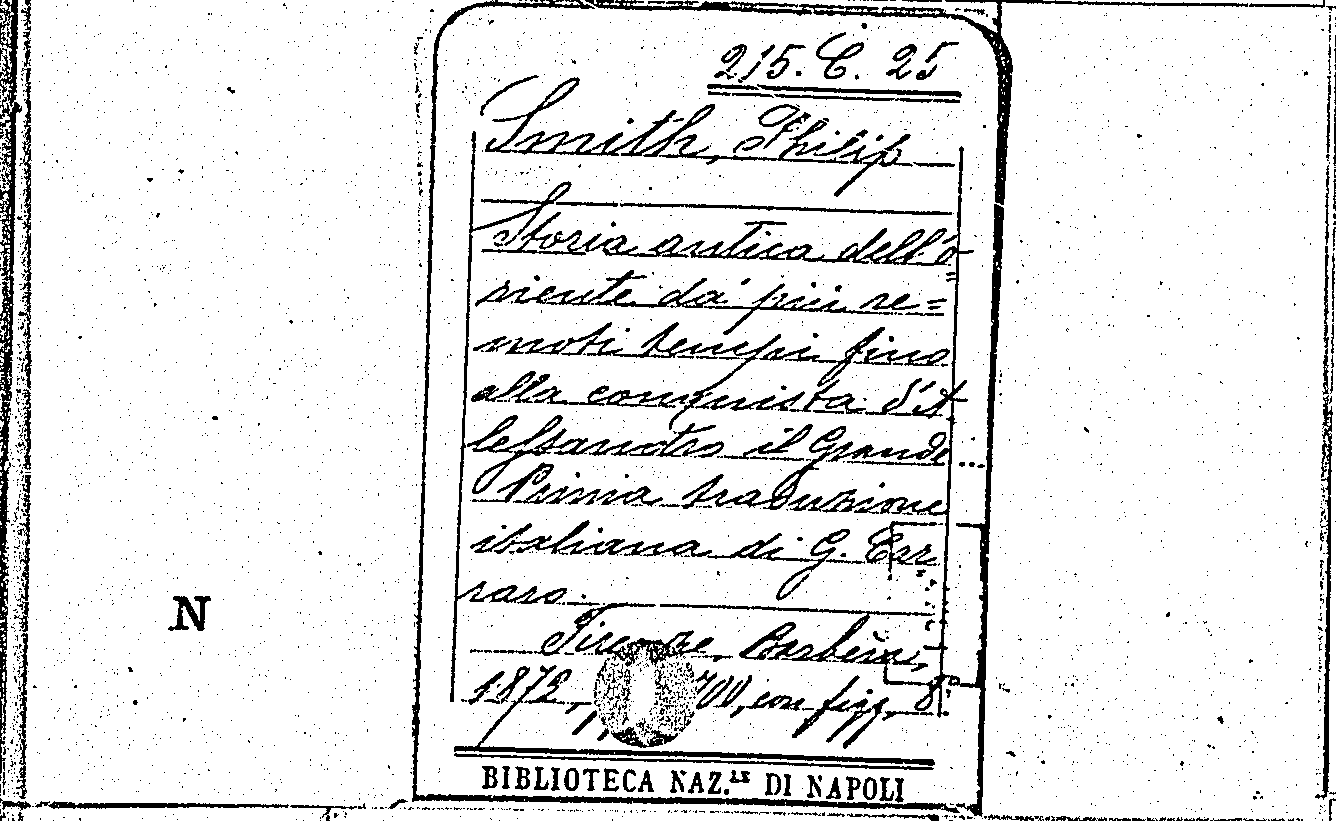 215. C. 25
Smith, Philip
Storia antica dell'o=
riente da' più re=
moti tempi fino
alla conquista d'A
lessandro il Grande...
Prima traduzione
italiana di G. Car
raro.
N
Firenze, Barbèra,
1872, 700, con figg. 8°
BIBLIOTECA NAZ.LE DI NAPOLI